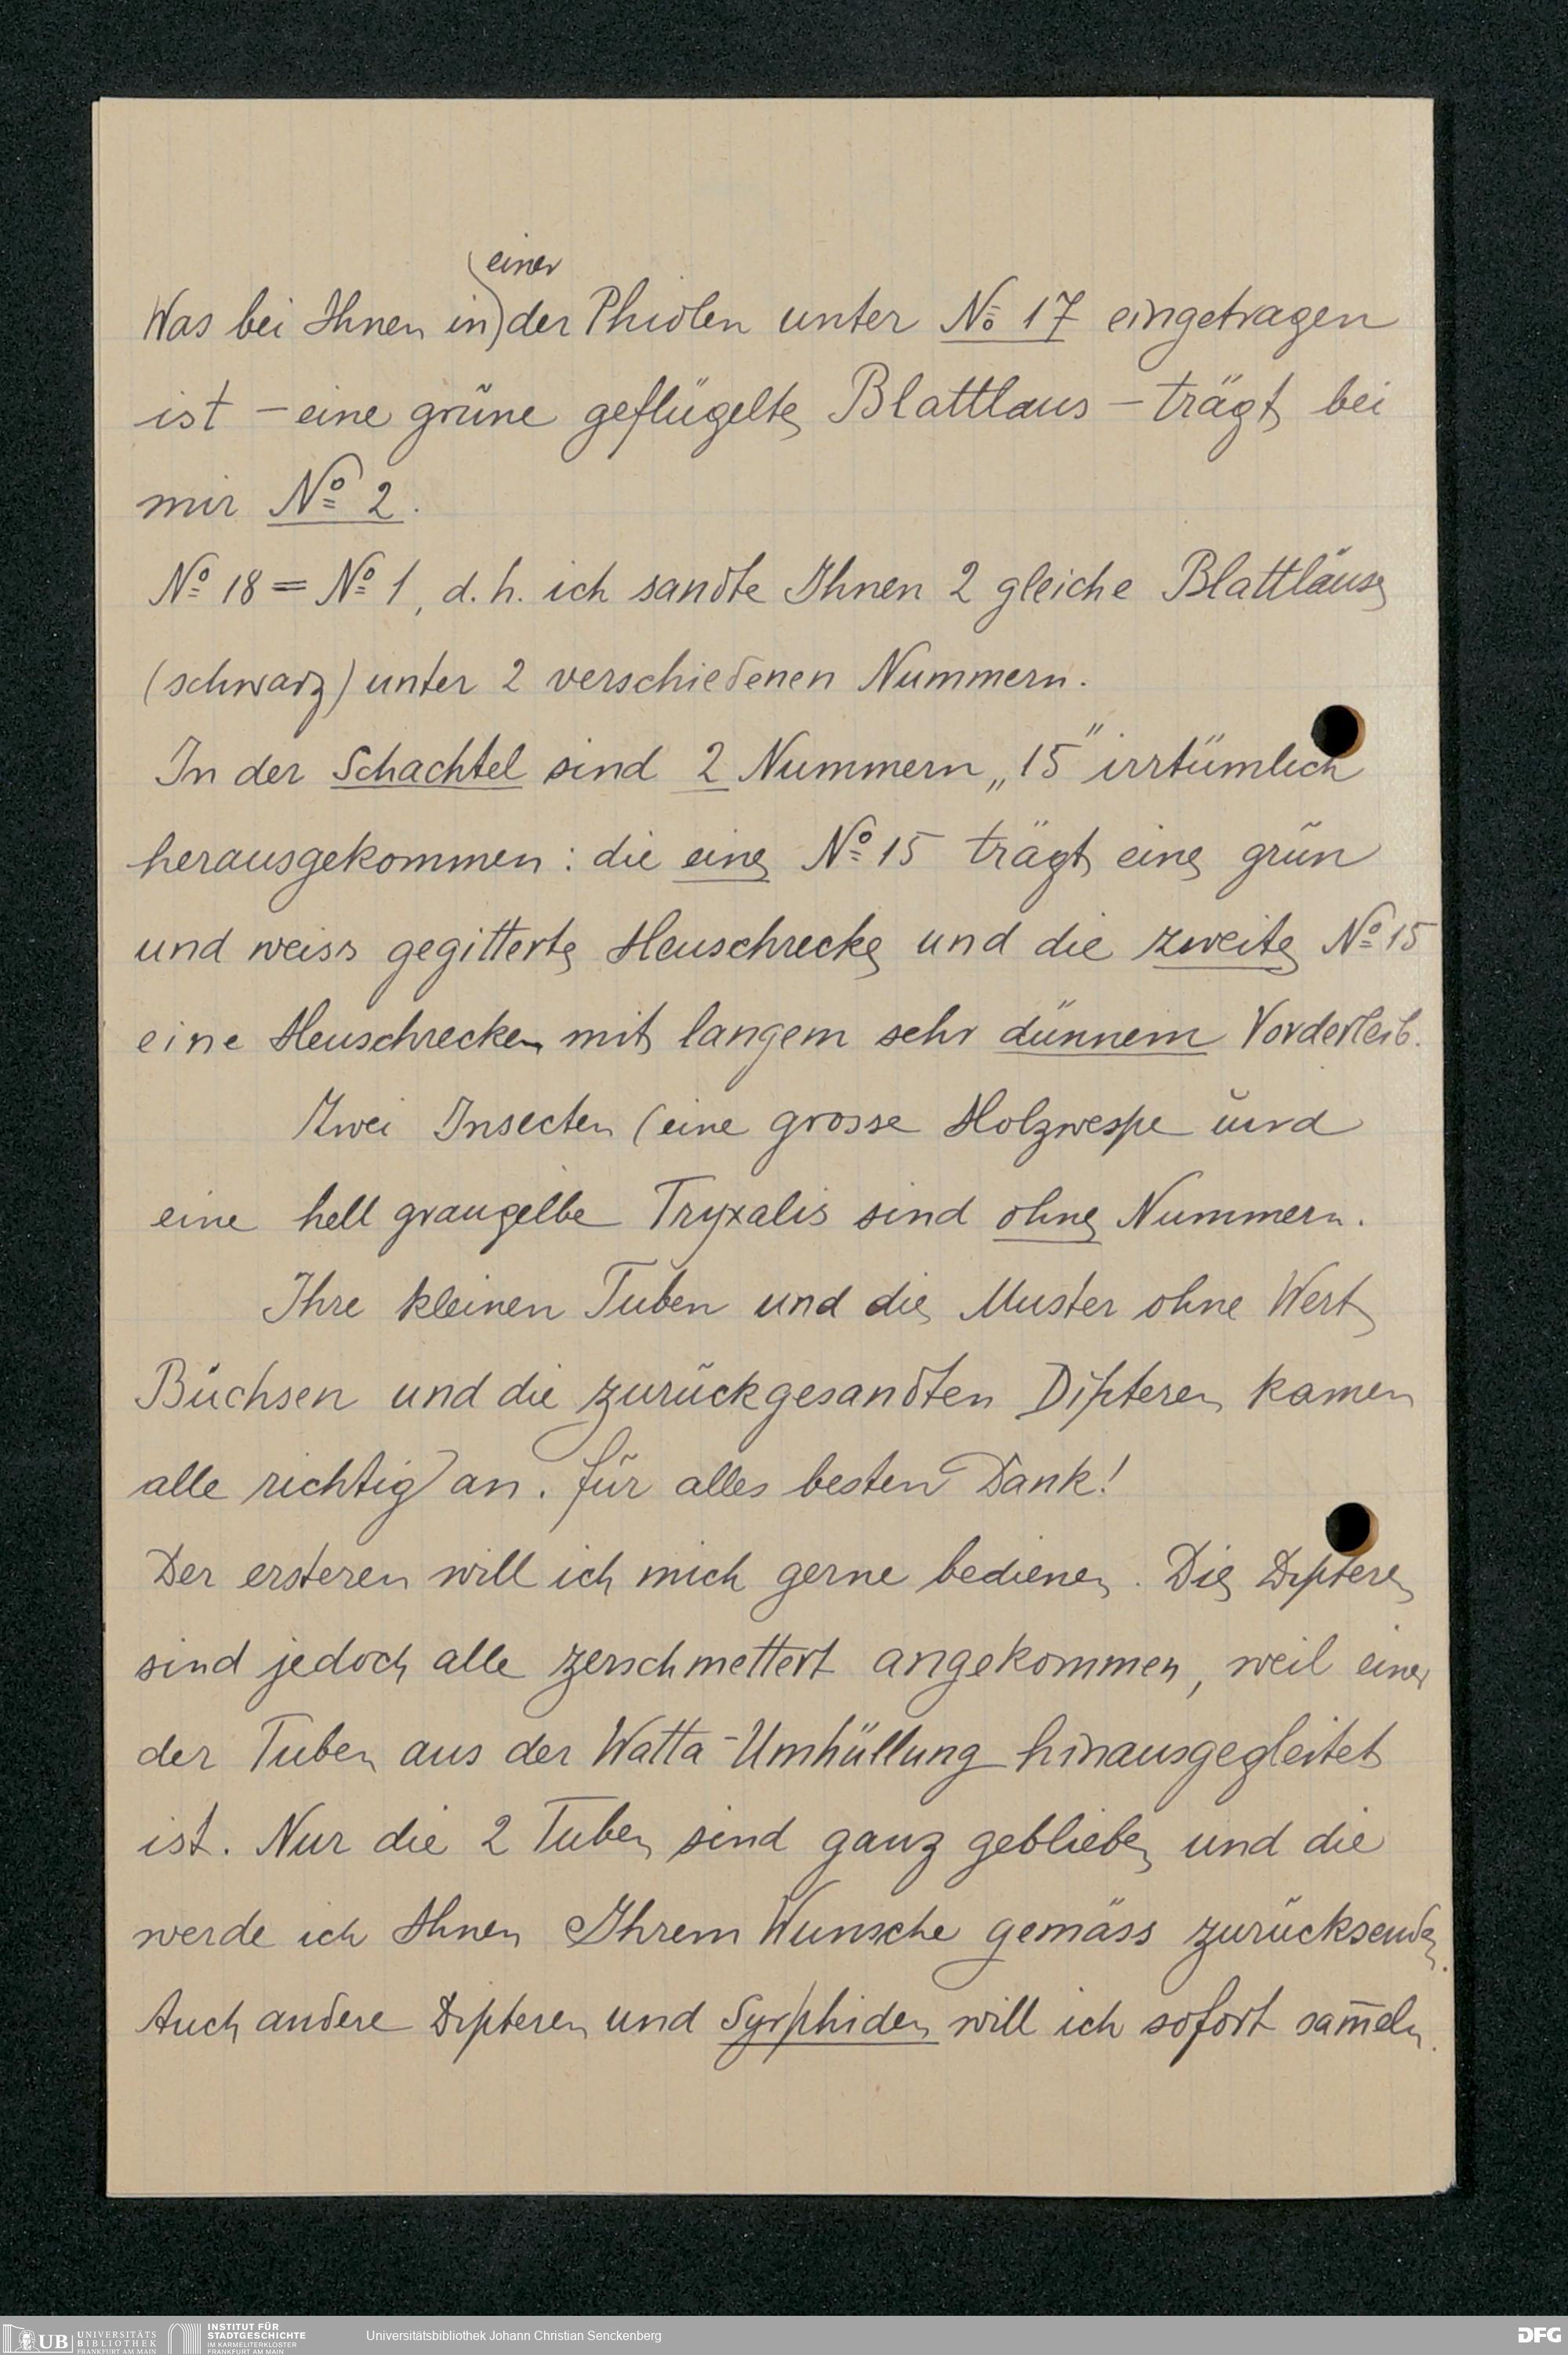 einer
Was bei Ihnen in der Phiolen unter No 17 eingetragen
ist – eine grüne geflügelte Blattlaus – trägt bei
mir No 2.
No 18 = No 1, d. h. ich sandte Ihnen 2 gleiche Blattläuse
(schwarz) unter 2 verschiedenen Nummern.
In der Schachtel sind 2 Nummern „15" irrtümlich
herausgekommen: die eine No 15 trägt eine grün
und weiss gegitterte Heuschrecke und die zweite No 15
eine Heuschrecken mit langem sehr dünnem Vorderleib.
Zwei Insecten (eine grosse Holzwespe und
eine hell graugelbe Tryxalis sind ohne Nummern.
Ihre kleinen Tuben und die Muster ohne Wert
Büchsen und die zurückgesandten Dipteren kamen
alle richtig an. für alles besten Dank!
Der ersteren will ich mich gerne bedienen. Die Dipteren
sind jedoch alle zerschmettert angekommen, weil einer
der Tuben aus der Watta-Umhüllung hinausgegleitet
ist. Nur die 2 Tuben sind ganz geblieben und die
werde ich Ihnen Ihrem Wunsche gemäss zurücksenden.
Auch andere Dipteren und Syrphiden will ich sofort sam̅eln.
UB UNIVERSITÄTS BIBLIOTHEK FRANKFURT AM MAIN
INSTITUT FÜR STADTGESCHICHTE IM KARMELITERKLOSTER FRANKFURT AM MAIN
Universitätsbibliothek Johann Christian Senckenberg
DFG